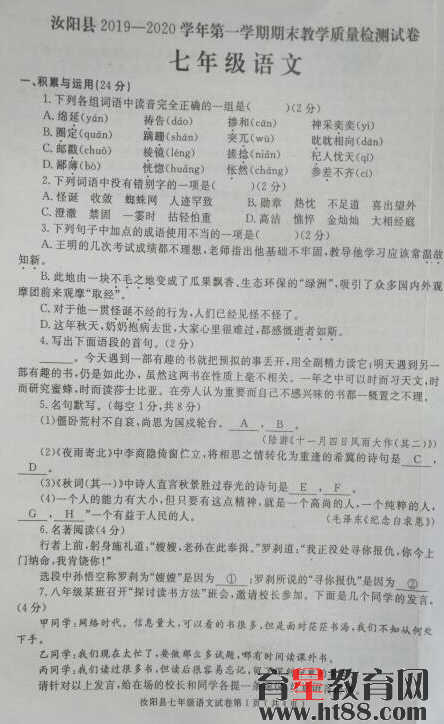 汝阳县2019—2020学年第一学期期末教学质量检测试卷
七年级语文
一、积累与运用(24分)
1.下列各组词语中读音完全正确的一组是(　　)(2分)
A.绵延(yán)　祷告(dǎo)　掺和(cān)　神采奕奕(yì)
B.圈定(quān)　蹒跚(shán)　突兀(wù)　眈眈相向(dān)
C.邮戳(chuō)　棱镜(léng)　搓捻(niǎn)　杞人忧天(qǐ)
D.鄙薄(bò)　恍惚(huǎng)　怅然(chǎng)　参差不齐(cī)
2.下列词语中没有错别字的一项是(　　)(2分)
A.怪诞　收敛　蜘蛛网　人迹罕致　B.勋章　热忱　不足道　喜出望外
C.澄澈　禁固　一霎时　拈轻怕重　D.高洁　憔悴　金灿灿　大相经庭
3.下列句子中加点的成语使用不当的一项是(　　)(2分)
A.王明的几次考试成绩都不理想,老师指出他基础不牢固,教导他学习应该常温故
知新。
B.此地由一块不毛之地变成了瓜果飘香、生态环保的“绿洲”,吸引了众多国内外观
摩团前来观摩“取经”。
C.对于他一贯怪诞不经的行为,人们已经见怪不怪了。
D.这年秋天,奶奶抱病去世,大家心里很难过,都感慨逝者如斯。
4.写出下面语段的首句。(2分)
。今天遇到一部有趣的书就把预拟的事丢开,用全副精力读它;明天遇到另一
部有趣的书,仍是如此办,虽然这两书在性质上毫不相关。一年之中可以时而习天文,时
而研究蜜蜂,时而读莎士比亚。在旁人认为重要而自己不感兴味的书都一概置之不理。
5.名句默写。(每空1分,共8分)
(1)僵卧荒村不自哀,尚思为国戍轮台。 A , B 。
(陆游《十一月四日风雨大作(其二)》)
(2)《夜雨寄北》中李商隐倚窗伫立,将相思之情转化为重逢的希冀的诗句是 C ,
D 。
(3)《秋词(其一)》中诗人直言秋景胜过春光的诗句是 E , F 。
(4)一个人的能力有大小,但只要有这点精神,就是一个高尚的人,一个纯粹的人,
G , H ”一个有益于人民的人。　(毛泽东《纪念白求恩》)
6.名著阅读(4分)
行者上前,躬身施礼道:“嫂嫂,老孙在此奉揖。”罗刹道:“我正没处寻你报仇,你今上
门纳命,我肯饶你!”
选段中孙悟空称罗刹为“嫂嫂”是因为 ① ;罗刹所说的“寻你报仇”是因为 ② 。
7.八年级某班召开“探讨读书方法”班会,邀请校长参加。下面是几个同学的发言。
(4分)
甲同学:网络时代。信息量大,可以看的书很多,但是面对茫茫书海,我们不知从何处
下手。
乙同学:我们现在太忙了,要做那么多试题,哪有时间读课外书。
丙同学:我们读过很多书,但读后很容易忘记,留
请针对以上发言,给在场的校长和同学各提一条
汝阳县七年级语文试卷第1页(共4页)
育星教育网
www.ht88.com